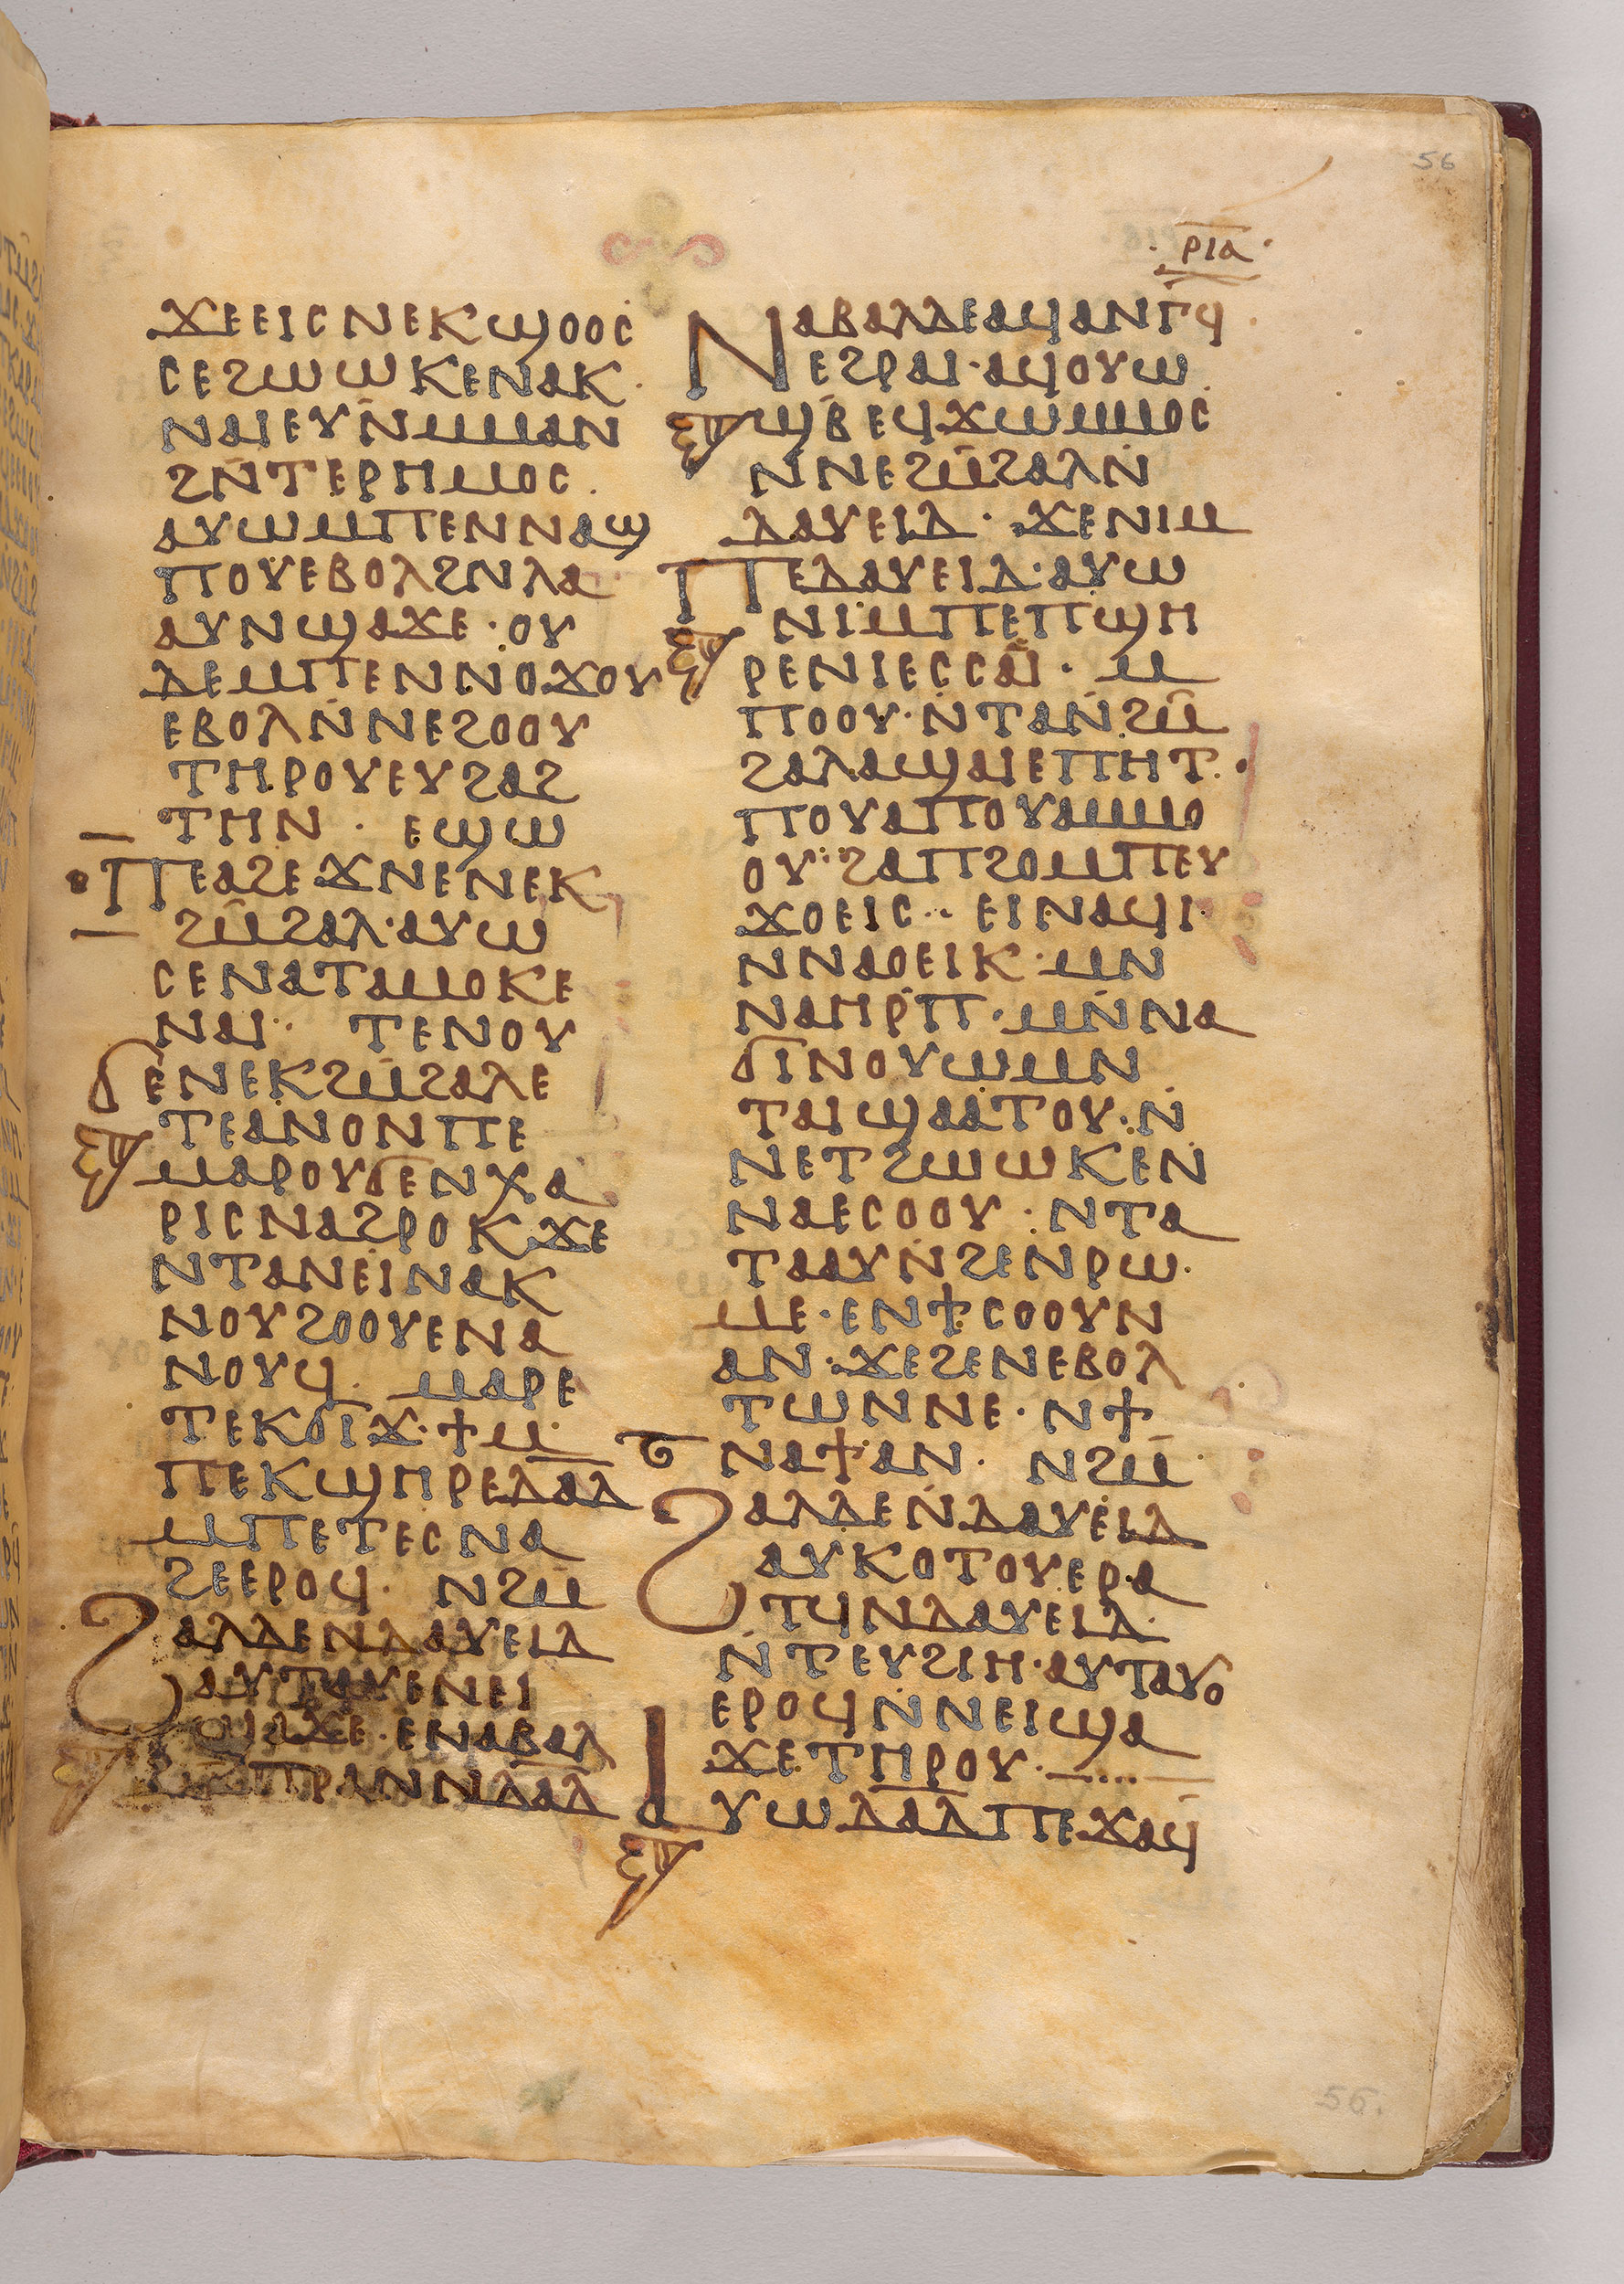 ⲣⲓⲁ
ϫⲉⲉⲓⲥⲛⲉⲕϣⲟⲟⲥ
ⲥⲉϩⲱⲱⲕⲉⲛⲁⲕ·
ⲛⲁⲓⲉⲩⲛ̄ⲙⲙⲁⲛ
ϩⲛ̄ⲧⲉⲣⲏⲙⲟⲥ·
ⲁⲩⲱⲙⲡⲉⲛⲛⲁϣ
ⲡⲟⲩⲉⲃⲟⲗϩⲛⲗⲁ
ⲁⲩⲛϣⲁϫⲉ·ⲟⲩ
ⲇⲉⲙⲡⲉⲛⲛⲟϫⲟⲩ
ⲉⲃⲟⲗⲛ̇ⲛⲉϩⲟⲟⲩ
ⲧⲏⲣⲟⲩⲉⲩϩⲁϩ
ⲧⲏⲛ· ⲉϣⲱ
ⲡⲉⲁϩⲉϫⲛⲉⲛⲉⲕ
ϩⲙ̄ϩⲁⲗ·ⲁⲩⲱ
ⲥⲉⲛⲁⲧⲁⲙⲟⲕⲉ
ⲛⲁⲓ· ⲧⲉⲛⲟⲩ
ϭⲉⲛⲉⲕϩⲙ̄ϩⲁⲗⲉ
ⲧⲉⲁⲛⲟⲛⲡⲉ
ⲙⲁⲣⲟⲩϭⲉⲛⲭⲁ
ⲣⲓⲥⲛⲁϩⲣⲟⲕϫⲉ
ⲛⲧⲁⲛⲉⲓⲛⲁⲕ
ⲛⲟⲩϩⲟⲟⲩⲉⲛⲁ
ⲛⲟⲩϥ· ⲙⲁⲣⲉ
ⲧⲉⲕϭⲓϫ·ϯⲙ
ⲡⲉⲕϣⲏⲣⲉⲇⲁ̅ⲇ
ⲙⲡⲉⲧⲉⲥⲛⲁ
ϩⲉⲉⲣⲟϥ· ⲛϩⲙ̄
ϩⲁⲗⲇⲉⲛⲇⲁⲩⲉⲓⲇ
ⲁⲩⲧⲁⲩⲉⲛⲉⲓ
ϣⲁϫⲉ·ⲉⲛⲁⲃⲁⲗ
ϩⲙⲡⲣⲁⲛⲛⲇⲁ̅ⲇ
ⲛⲁⲃⲁⲗⲇⲉⲁϥⲁⲛⲅϥ
ⲉϩⲣⲁⲓ·ⲁϥⲟⲩⲱ
ϣⲃ̄ⲉϥϫⲱⲙⲙⲟⲥ
ⲛ̇ⲛⲉϩⲙ̄ϩⲁⲗⲛ̇
ⲇⲁⲩⲉⲓⲇ· ϫⲉⲛⲓⲙ
ⲡⲉⲇⲁⲩⲉⲓⲇ·ⲁⲩⲱ
ⲛⲓⲙⲡⲉⲡϣⲏ
ⲣⲉⲛⲓⲉⲥⲥⲁⲓ̈· ⲙ
ⲡⲟⲟⲩ·ⲛ̇ⲧⲁⲛ̇ϩⲙ̄
ϩⲁⲗⲁϣⲁⲓⲉⲡⲏⲧ·
ⲡⲟⲩⲁⲡⲟⲩⲁⲙⲙⲟ
ⲟⲩ·ϩⲁⲡϩⲟⲙⲡⲉⲩ
ϫⲟⲉⲓⲥ· ⲉⲓⲛⲁϥⲓ
ⲛⲛⲁⲟⲉⲓⲕ·ⲙⲛ
ⲛⲁⲏⲣⲡ̄·ⲙⲛ̇ⲛⲁ
ϭⲓⲛⲟⲩⲱⲙⲛ
ⲧⲁⲓϣⲁⲁⲧⲟⲩ·ⲛ̇
ⲛⲉⲧϩⲱⲱⲕⲉⲛ̇
ⲛⲁⲉⲥⲟⲟⲩ·ⲛⲧⲁ
ⲧⲁⲁⲩⲛ̇ϩⲉⲛⲣⲱ
ⲙⲉ·ⲉⲛϯⲥⲟⲟⲩⲛ
ⲁⲛ·ϫⲉϩⲉⲛⲉⲃⲟⲗ
ⲧⲱⲛⲛⲉ·ⲛϯ
ⲛⲁϯⲁⲛ· ⲛϩⲙ̄
ϩⲁⲗⲇⲉⲛ̇ⲇⲁⲩⲉⲓⲇ
ⲁⲩⲕⲟⲧⲟⲩⲉⲣⲁ
ⲧϥⲛⲇⲁⲩⲉⲓⲇ·
ⲛ̇ⲧⲉⲩϩⲓⲏ·ⲁⲩⲧⲁⲩⲟ
ⲉⲣⲟϥⲛ̇ⲛⲉⲓϣⲁ
ϫⲉⲧⲏⲣⲟⲩ·
ⲁⲩⲱⲇⲁ̅ⲇⲡⲉϫⲁϥ
56
56.